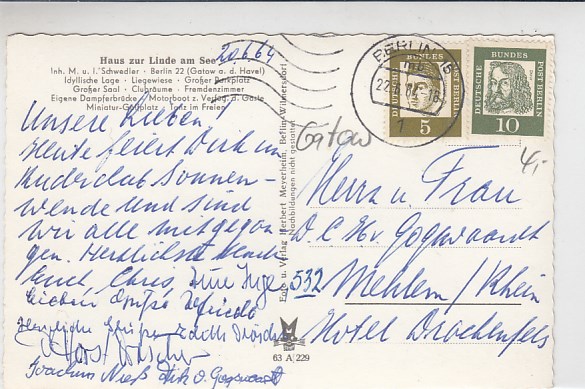 Haus zur Linde am See
Inh. M. u. I. Schwedler · Berlin 22 (Gatow a. d. Havel)
Idyllische Lage · Liegewiese · Großer Parkplatz
Großer Saal · Clubräume · Fremdenzimmer
Eigene Dampferbrücke / Motorboot z. Verfüg. d. Gäste
Miniatur-Golfplatz · Tanz im Freien
20.6.64
Unsere Lieben!
Heute feiert Dirk im
Ruderclub Sonnen-
wende und sind
wir alle mitgegan
gen. Herzlichste
Euch, Chris,
lieben
Herzliche Grüße
Joachim Dirk v. Gogwaardt
Foto u. Verlag Herbert Meyerheim, Berlin-Wilmersdorf
Nachbildungen nicht gestattet
63 A 229
Gatow
BERLIN
1
DEUTSCHE BUNDES POST BERLIN
5
DEUTSCHE BUNDES POST BERLIN
10
4,-
Herrn u. Frau
D. C. Hv. Gogwaardt
532 Mehlem/Rhein
Hotel Drachenfels